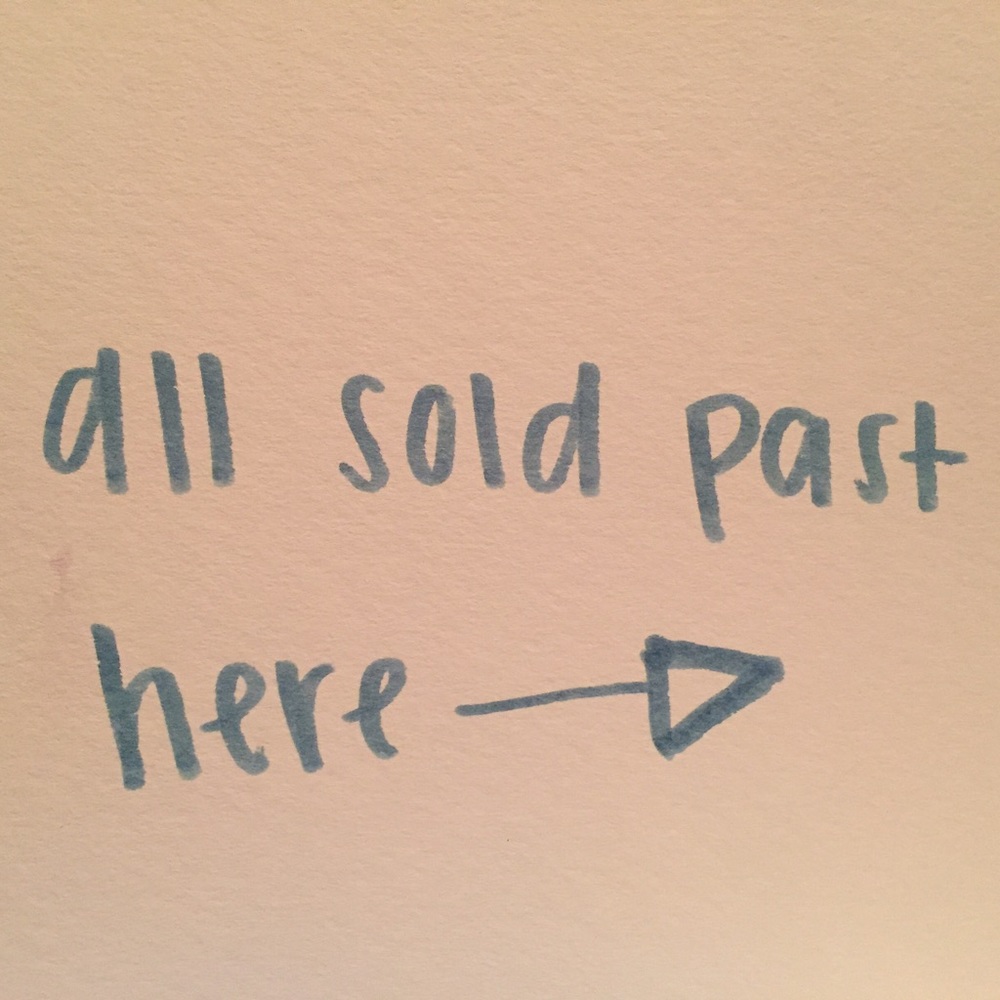 all sold past
here